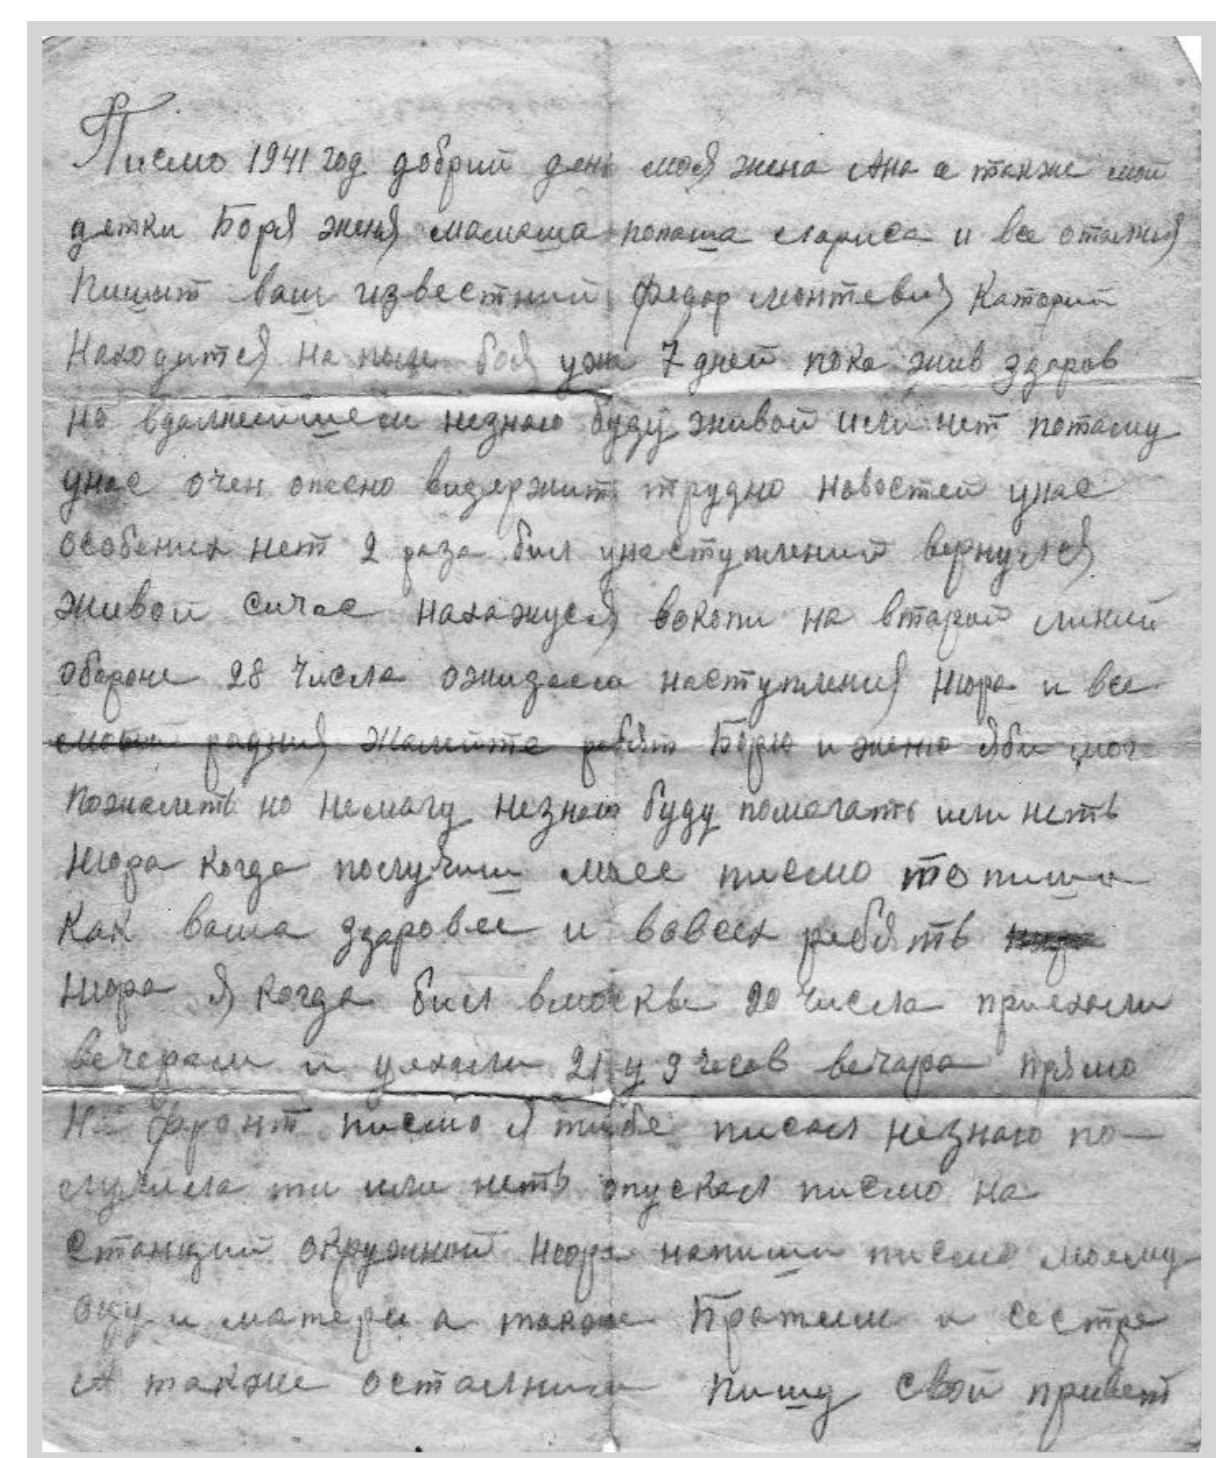 Писмо 1941 год добрий день моя жена Ана а также мои
детки Боря женя мамаша попаша Лариса и все
Пишит ваш известний Федор Каторий
Находится на поли боя уже 7 дней пока жив здоров
но вдалнейшем незнаю буду живой или нет потаму
унас очен опасно видержит трудно новостей унас
особених нет 2 раза бил унаступлений вернулся
живои сичас нахажуся вокопи на втарой линий
обароне 28 числа ожидаем наступления Нюра и все
радния жалейте ребят Борю и женю яби мог
пожалеть но немагу незнаю буду помагать или неть
Нюра когда получиш мяее писмо то пиши
Как ваша здаровее и вовсех ребять
Нюра я когда бил вмоскве 20 числа приехали
вечерам и уехали 21 у 9 часов вечара прямо
На фронт писмо я тибе писал незнаю по-
лучила ти или неть опускал писмо на
Станций окружной Нюра напиши писмо моему
оцу и матери а также Братям и сестре
А также осталним пишу свой привет